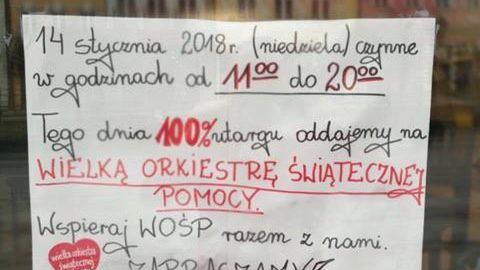 14 stycznia 2018r. (niedziela) czynne
w godzinach od 11⁰⁰ do 20⁰⁰
Tego dnia 100% utargu oddajemy na
WIELKĄ ORKIESTRĘ ŚWIĄTECZNEJ
POMOCY.
Wspieraj WOŚP razem z nami.
wielka orkiestra
świątecznej
ZAPRASZAMY